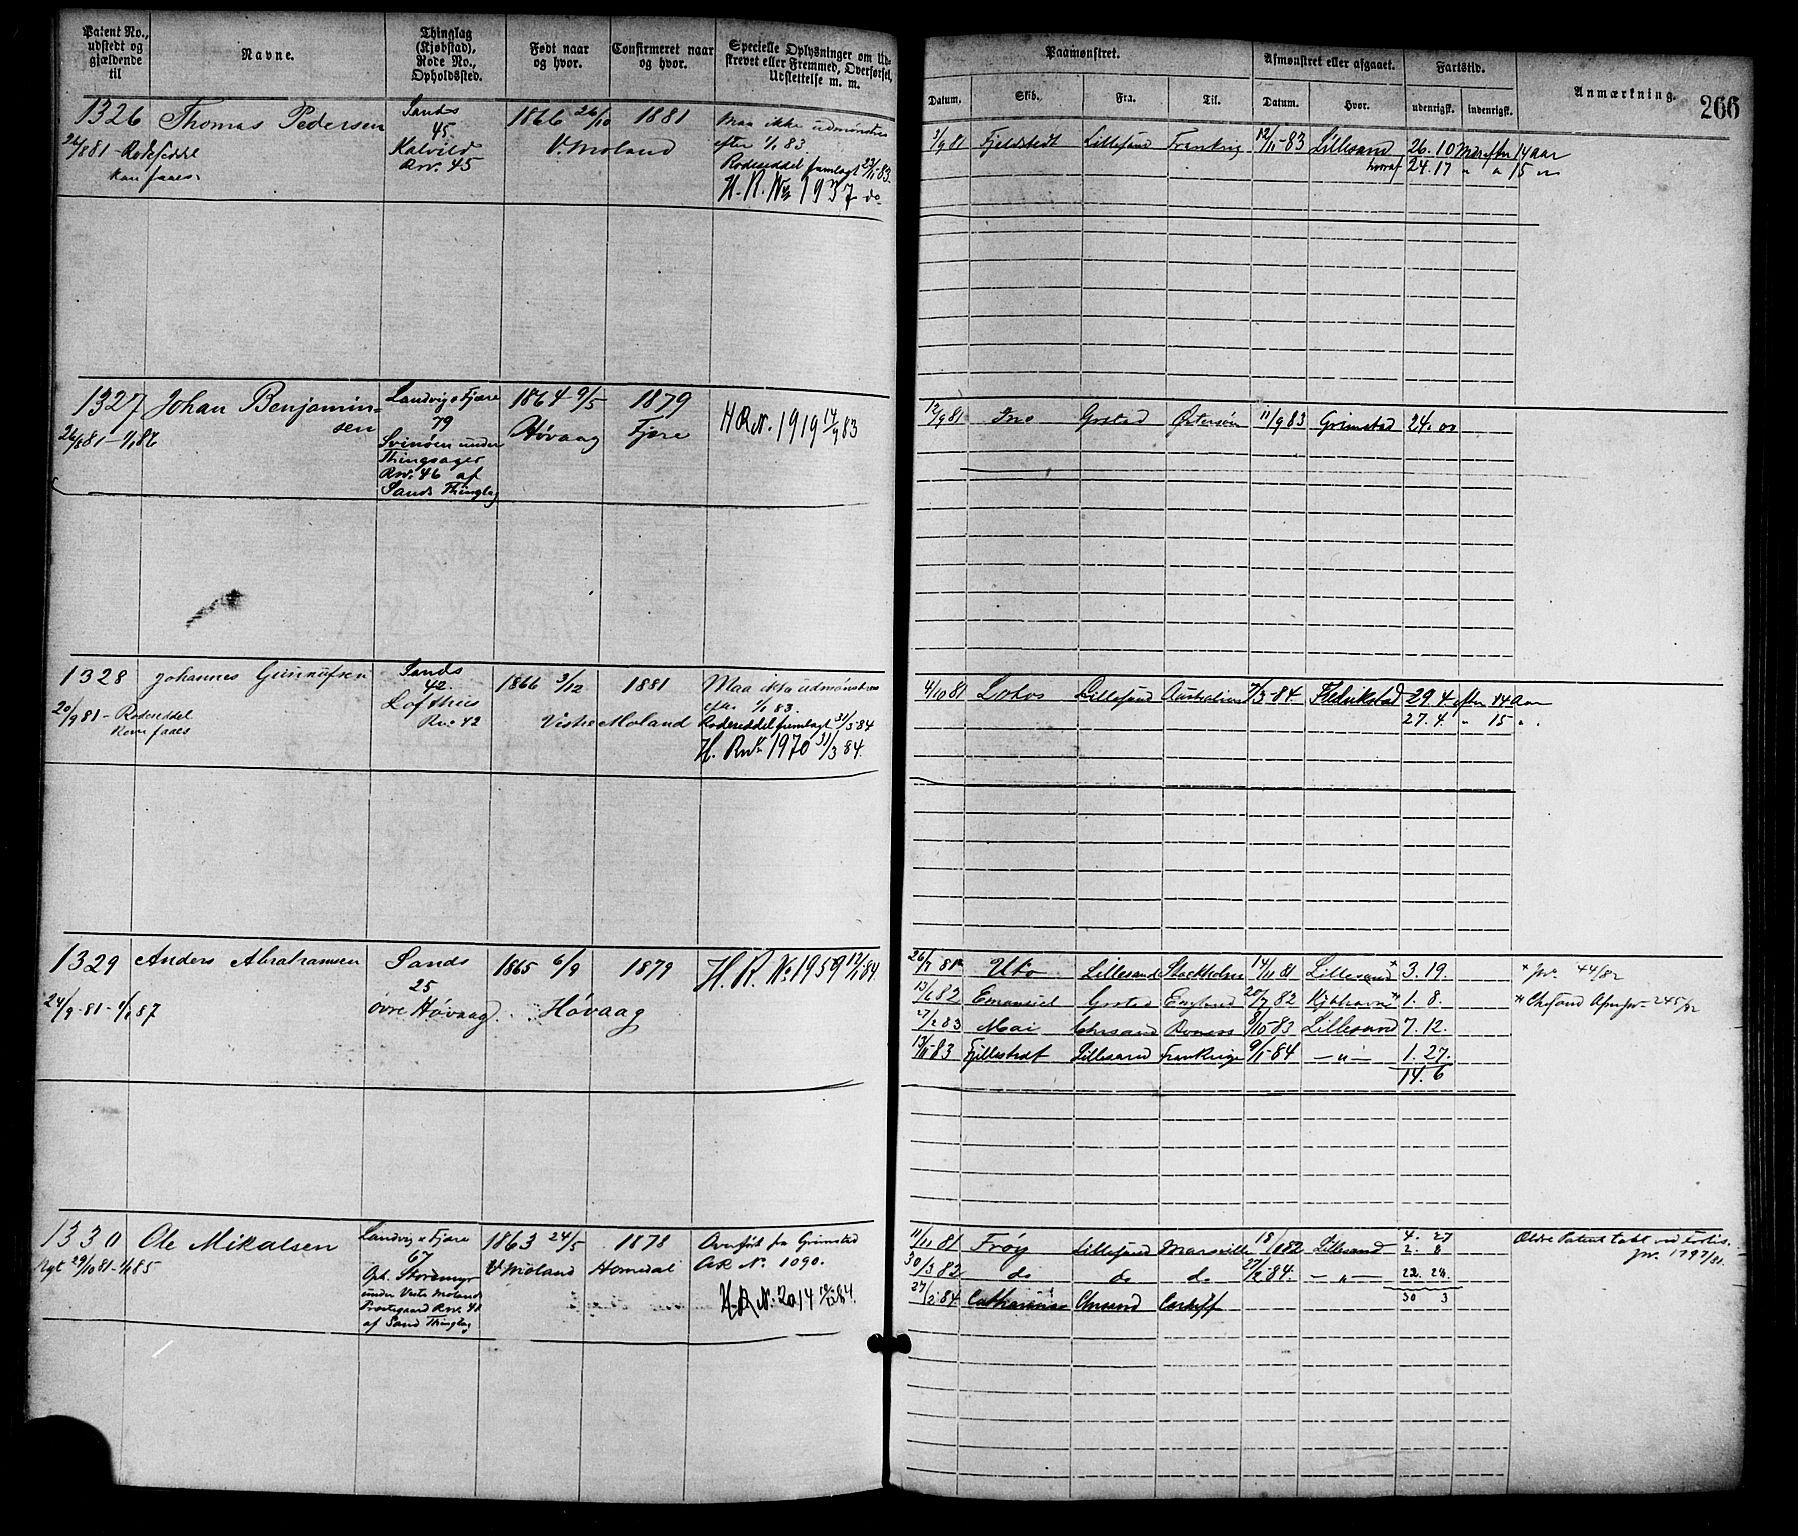 Patent No., udstedt og gjældende til
Navne.
Thinglag (Kjøbstad), Rode No., Opholdssted.
Født naar og hvor.
Confirmeret naar og hvor.
Specielle Oplysninger om Udskrevet eller Fremmed, Overførsel, Udslettelse m. m.
Paamønstret.
Datum.
Skib.
Fra.
Til.
Afmønstret eller afgaaet.
Datum.
Hvor.
Fartstid.
udenrigsk.
indenrigsk.
Anmærkning.
266
1326 Thomas Pedersen
26/8 81 - Rodeseddel
kan faaes.
Sands
45
Kalvild
Rnr. 45
1866 26/10
V. Moland
1881
Maa ikke udmønstres
efter 1/1 83.
Rodeseddel fremlagt 23/11 83.
H. R. No 1937 do
3/9 81 Fjeldstedt Lillesand Frankrig 12/11-83 Lillesand 26. 10 Mdr efter 14 Aar
hvoraf 24. 17 " " 15 "
1327 Johan Benjaminsen
26/8 81 - 1/1 86
Landvig & Fjære
79
Svinøen under
Thingsager
Rnr. 46 af
Sands Thinglag
1864 9/5
Høvaag
1879
Fjære
H R N. 1919 14/9 83
12/9 81 Ino Grstad Østersøen 11/9 83 Grimstad 24. 00
1328 Johannes Gunnufsen
20/9 81 - Rodeseddel
kan faaes
Sands
42.
Lofthus
Rnr 42
1866 3/12
1881
Vestre Moland
Maa ikke udmønstres
efter 1/1 83.
Rodeseddel fremlagt 31/3 84
H. R No 1970 31/3 84.
4/10 81 Lillesand Australien 7/3-84. Fredrikstad 29. 4. efter 14 Aar
27. 4. " 15 ".
1329 Anders Abrahamsen
24/9-81 - 1/1 87
Sands
25
øvre Høvaag
1865 6/9
1879
Høvaag
H. R. No 1959 12/1 84.
26/7 81 Uto Lillesand Stockholm 14/11 81 Lillesand x 3. 19. x jnr. 44/82
13/6 82 Emanuel Grstad England 20/7 82 Kjøbhavn 1. 8. Chrsand Afmjnr 245/82
27/2 83 Mai Chrsand 8/10-83 Lillesand 7. 12.
13/11-83 Lillesand Frankrige 9/1-84 - " - 1. 27.
14. 6
1330 Ole Mikalsen
Nyt 29/10 81 - 1/1 85
Landvig & Fjære
67
Oph. Stordmyr
under Vestre Molands
Præstegaard Rnr. 41
af Sand Thinglag
1863 24/5
V. Moland
1878
Homedal
Overført fra Grimstad
AR No. 1090.
H. R No. 2014 84.
11/11 81 Frøy Lillesand Marseille 18/1 82 Lillesand 4. 27
2. 8
30/3 82 do do do 27/2 84. - " - 22. 28
27/2 84 Catharina Chrsand Cardiff 30 3
Ældre Patent tabt ved Forlis.
jnr. 1797/81.